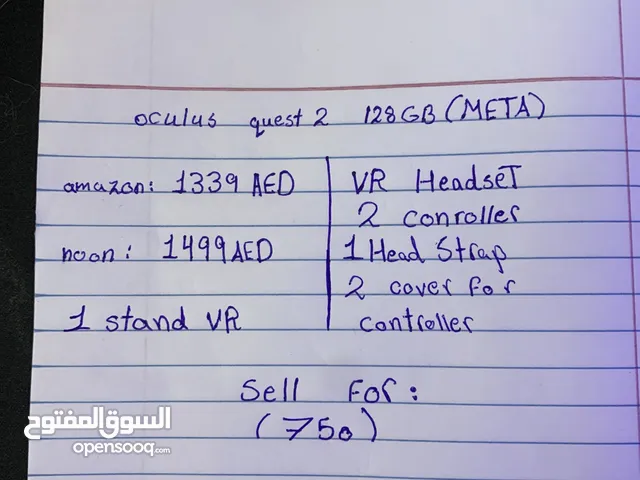 oculus quest 2 128GB (META)
amazon: 1339 AED
noon: 1499 AED
1 stand VR
VR Headset
2 conroller
1 Head Strap
2 cover for
controller
Sell For:
(750)
السوق المفتوح
opensooq.com